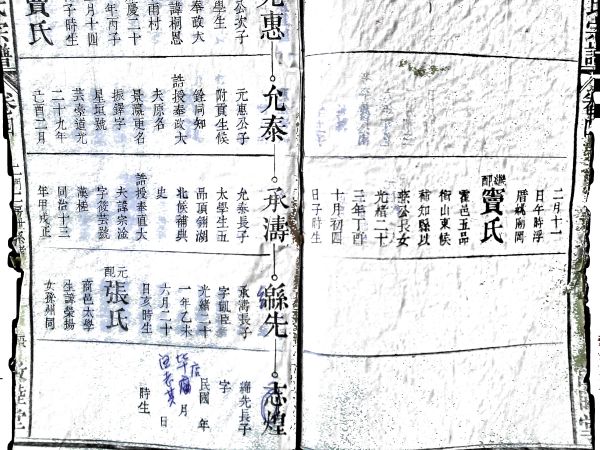 允惠
公次子
學生
奉政大
諱桐恩
雨村
慶二十
年丙子
月十四
子時生
竇氏
允泰
元惠公子
附貢生候
銓同知
誥授奉政大
夫原名
景瀛更名
振鐸字
星垣號
芸泰道光
二十九年
己酉二月
承濤
允泰長子
太學生五
品頂翎湖
北候補典
史
誥授奉直大
夫諱宗淦
字筱芸號
漢槎
同治十三
年甲戌正
二月十二
日午時浮
厝媯
繼配竇氏
霍邑五品
銜山東候
補知縣以
燊公長女
光緒二十
三年丁酉
十月初四
日子時生
緜先
承濤長子
字凱臣
光緒二十
一年乙未
六月二十
日亥時生
元配張氏
商邑太學
生諱榮揚
女孫州同
志煌
緜先長子
字
民國 年
月
日
時生
宗譜
敦陸堂